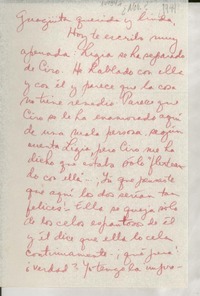 Nov. 5 1949
Guagüita querida y linda.
Hoy te escribo muy
apenada. Ligia se ha separado
de Ciro. He hablado con ella
y con él y parece que la cosa
no tiene remedio. Parece que
Ciro se le ha enamorado aquí
de una mala persona, según
cuenta Ligia pero Ciro me ha
dicho que estaba solo
con ella
que aquí los dos serían tan
felices! Ella se queja sólo
de los celos espantosos de él
y él dice que ella lo cela
continuamente. ¡qué pena!
verdad? Yo tengo la impre-